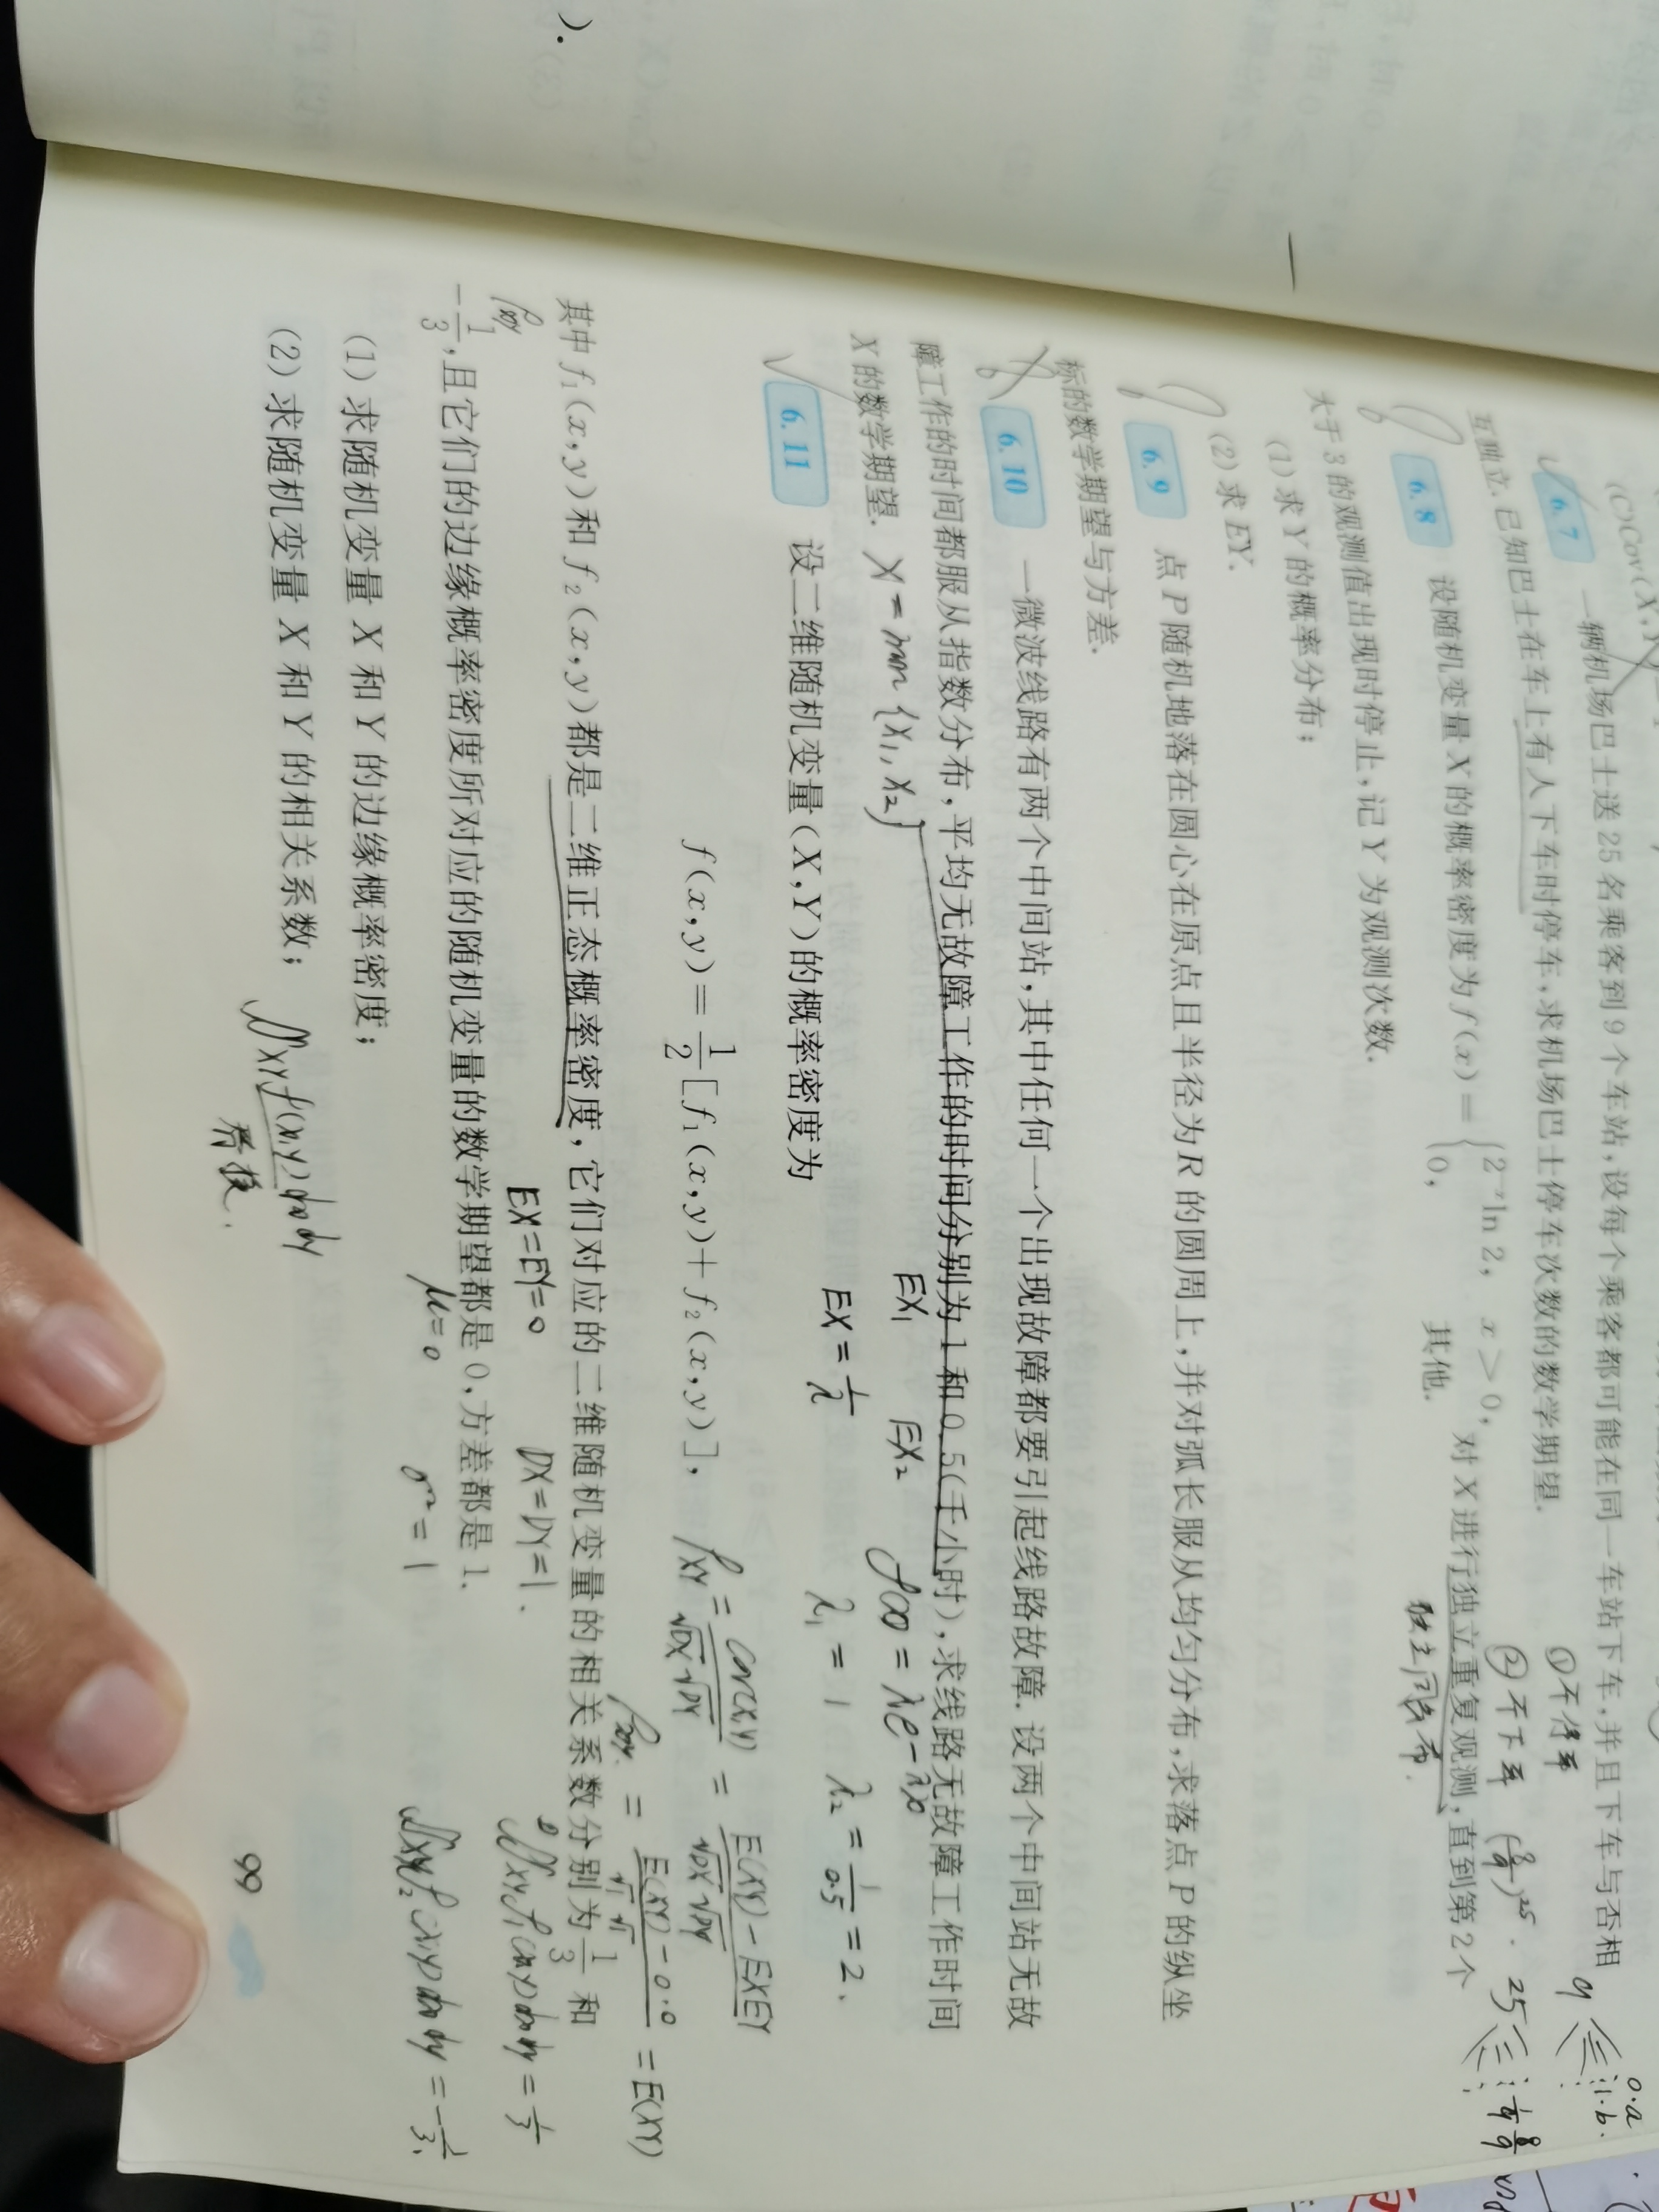 ).
(C)Cov(X,Y
6.7 一辆机场巴士送 25 名乘客到 9 个车站,设每个乘客都可能在同一车站下车,并且下车与否相
互独立.已知巴士在车上有人下车时停车,求机场巴士停车次数的数学期望.
①不停车
②不下车 (8/9)^25 · 25
6.8 设随机变量 X 的概率密度为 f(x) = { 2^{-x} ln 2, x > 0, 0, 其他. 对 X 进行独立重复观测,直到第 2 个
独立同分布.
大于 3 的观测值出现时停止,记 Y 为观测次数.
(1) 求 Y 的概率分布;
(2) 求 EY.
6.9 点 P 随机地落在圆心在原点且半径为 R 的圆周上,并对弧长服从均匀分布,求落点 P 的纵坐
标的数学期望与方差.
6.10 一微波线路有两个中间站,其中任何一个出现故障都要引起线路故障.设两个中间站无故
障工作的时间都服从指数分布,平均无故障工作的时间分别为 1 和 0.5(千小时),求线路无故障工作时间
X 的数学期望. X = min {X₁, X₂} EX₁ EX₂ f(x) = λe^{-λx}
EX = 1/λ λ₁ = 1 λ₂ = 1/0.5 = 2.
6.11 设二维随机变量(X,Y)的概率密度为
f(x,y) = 1/2 [f₁(x,y) + f₂(x,y)], ρ_XY = Cov(X,Y)/√DX√DY = E(XY) − EXEY/√DX√DY
ρ_XY = E(XY) − 0·0/√1√1 = E(XY)
其中 f₁(x,y)和 f₂(x,y)都是二维正态概率密度,它们对应的二维随机变量的相关系数分别为 1/3 和
ρ_XY EX=EY=0 DX=DY=1. ∬xyf₁(x,y)dxdy = 1/3
−1/3,且它们的边缘概率密度所对应的随机变量的数学期望都是 0,方差都是 1.
μ=0 σ²=1 ∬xyf₂(x,y)dxdy = −1/3.
(1) 求随机变量 X 和 Y 的边缘概率密度;
(2) 求随机变量 X 和 Y 的相关系数; ∬xyf(x,y)dxdy
99